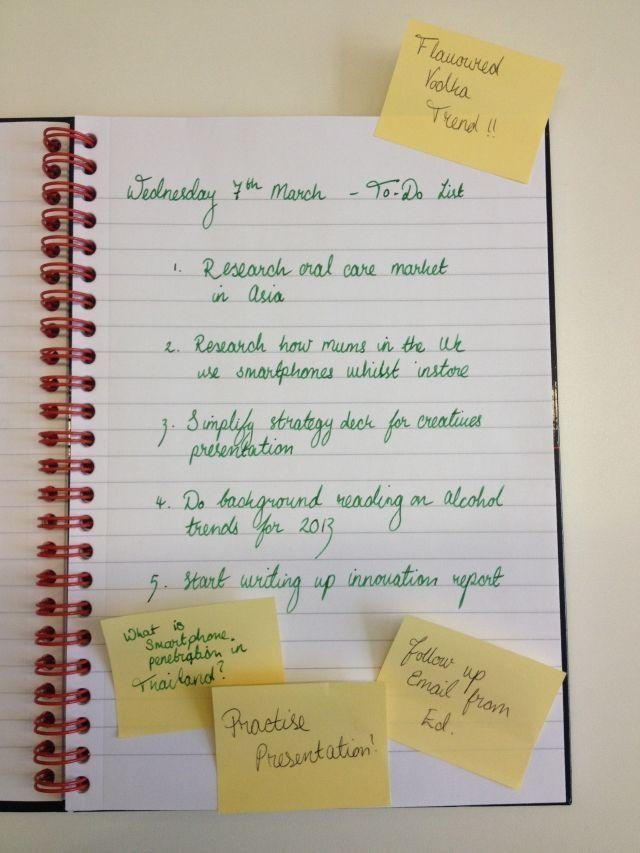 Flavoured
Vodka
Trend!!
Wednesday 7th March - To-Do List
1. Research oral care market
in Asia
2. Research how mums in the UK
use smartphones whilst instore
3. Simplify strategy deck for creatives
presentation
4. Do background reading on alcohol
trends for 2013
5. Start writing up innovation report
What is
Smartphone
penetration in
Thailand?
Practise
Presentation!
Follow up
Email from
Ed.